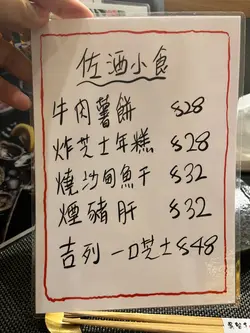 佐酒小食
牛肉薯餅 $28
炸芝士年糕 $28
燒沙甸魚干 $32
煙豬肝 $32
吉列一口芝士 $48